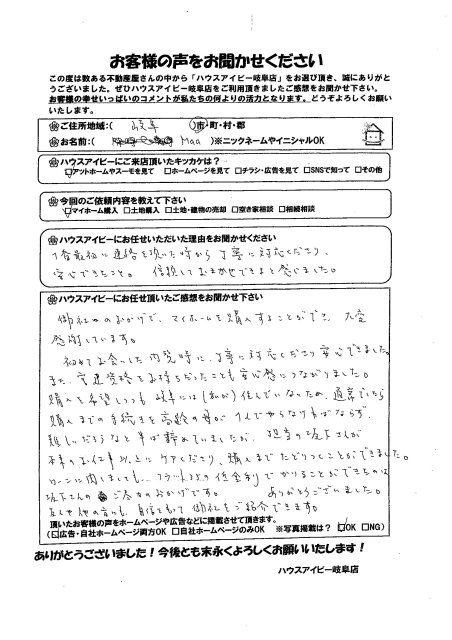 お客様の声をお聞かせください
この度は数ある不動産屋さんの中から「ハウスアイビー岐阜店」をお選び頂き、誠にありがと
うございました。ぜひハウスアイビー岐阜店をご利用頂きましたご感想をお聞かせ下さい。
お客様の幸せいっぱいのコメントが私たちの何よりの活力となります。どうぞよろしくお願い
いたします。
ご住所地域:( 岐阜 )市・町・村・郡
お名前:( Maa )※ニックネームやイニシャルOK
ハウスアイビーにご来店頂いたキッカケは？
☑アットホームやスーモを見て □ホームページを見て □チラシ・広告を見て □SNSで知って □その他
今回のご依頼内容を教えて下さい
☑マイホーム購入 □土地購入 □土地・建物の売却 □空き家相談 □相続相談
ハウスアイビーにお任せいただいた理由をお聞かせください
1番最初に連絡を頂いた時から丁寧に対応くださり、
安心できたこと。 信頼しておまかせできると感じました。
ハウスアイビーにお任せ頂いたご感想をお聞かせ下さい
御社のおかげで、マイホームを購入することができ、大変
感謝しています。
初めてお会いした内覧時に、丁寧に対応くださり安心できました。
また、宅建資格をお持ちだったことも安心感につながりました。
購入を希望しつつも岐阜には(私が)住んでいないため、通常でしたら
購入までの手続きを高齢の母が1人でやらなければならず、
難しいだろうなと半ば諦めていましたが、担当の坂下さんが
本来のお仕事以上にケアくださり、購入までたどりつくことができました。
ローンに関しましても、フラット35の低金利でかりることができたのは
坂下さんのご尽力のおかげです。 ありがとうございました。
友人や他の方にも、自信をもって御社をご紹介できます。
頂いたお客様の声をホームページや広告などに掲載させて頂きます。
(☑広告・自社ホームページ両方OK □自社ホームページのみOK ※写真掲載は？ ☑OK □NG)
ありがとうございました！今後とも末永くよろしくお願いいたします！
ハウスアイビー岐阜店